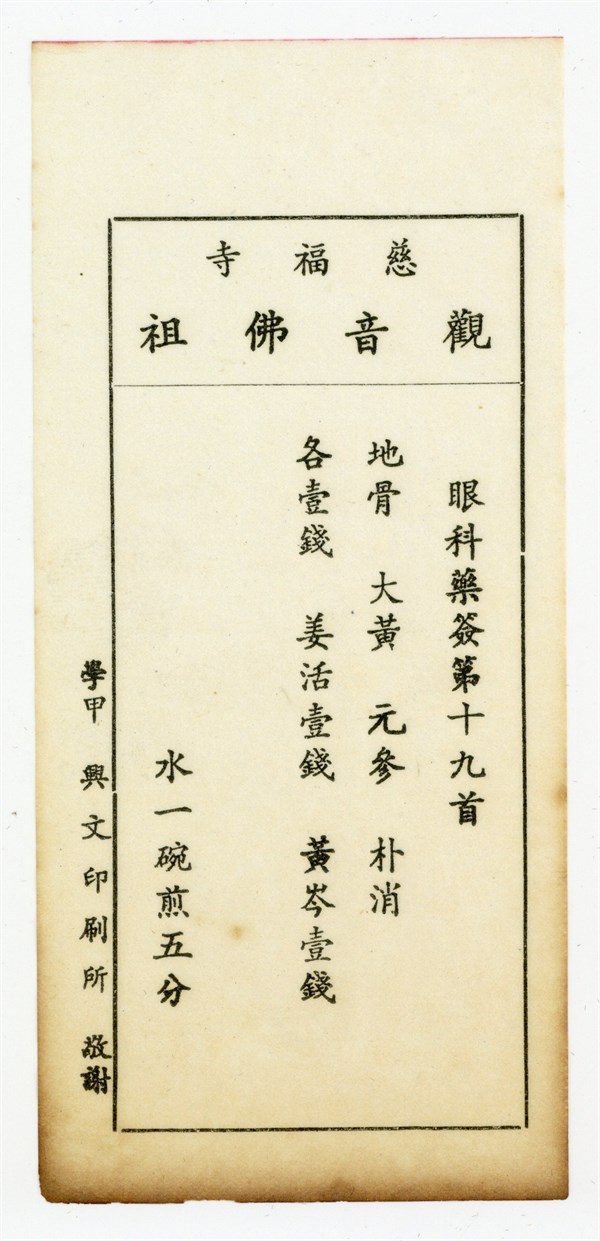 慈福寺
觀音佛祖
眼科藥簽第十九首
地骨　大黃　元參　朴消
各壹錢　姜活壹錢　黃岑壹錢
水一碗煎五分
學甲　興文印刷所　敬謝